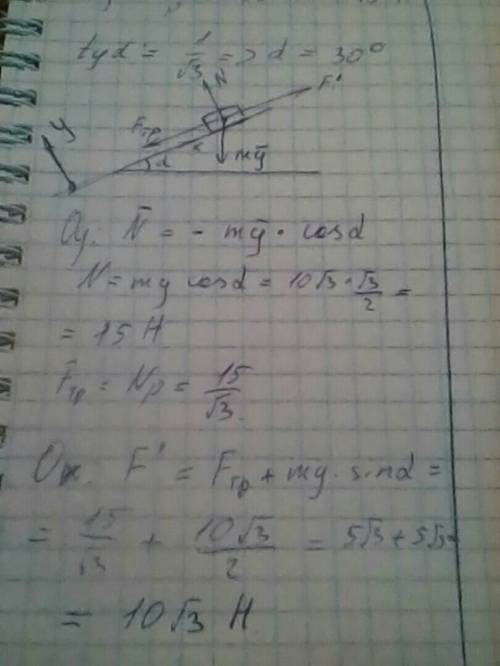 tgα = 1/√3 => α = 30°
N
F'
Fтр
y
x
α
mg̅
Oy: N̅ = - mg̅ · cosα
N = mg cosα = 10√3 · √3/2 =
= 15 H
F̅тр = Nμ = 15/√3
Ox: F' = Fтр + mg · sinα =
= 15/√3 + 10√3/2 = 5√3 + 5√3 =
= 10√3 H